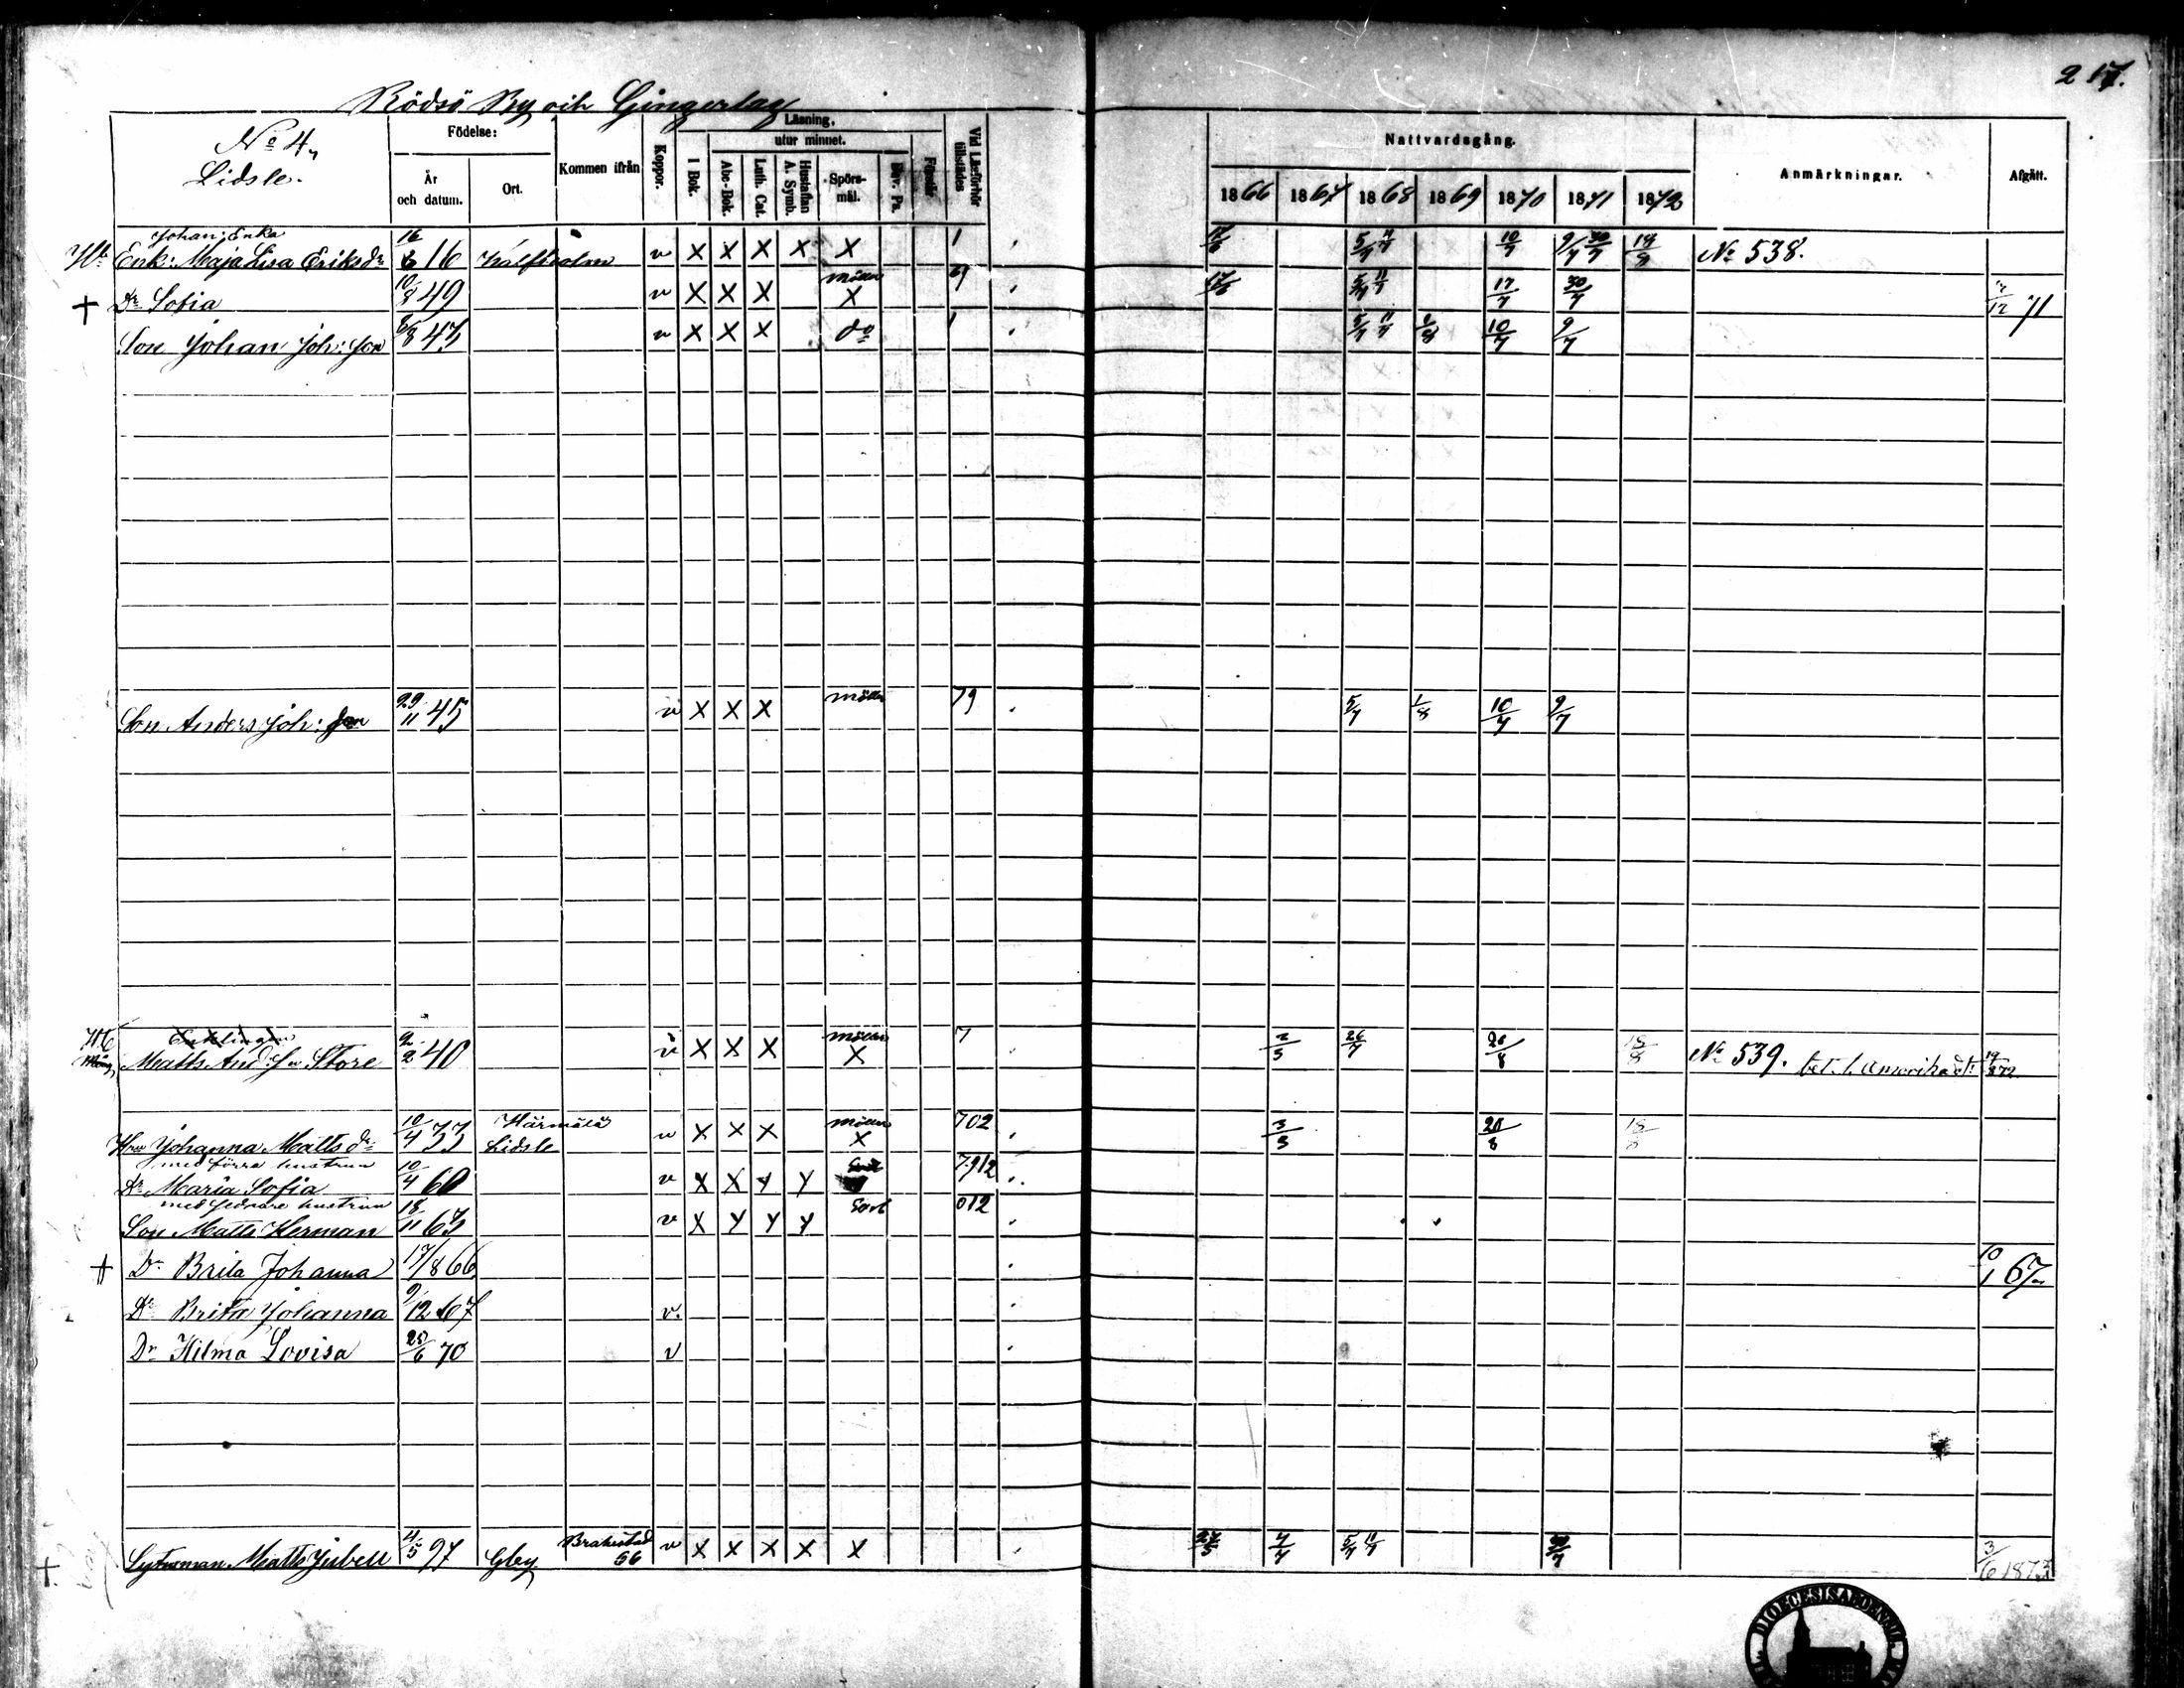 217.
Rödsö By och Gingerlag
No 4,
Lidsle.
Födelse:
År och datum.
Ort.
Kommen ifrån
Koppor.
Läsning.
I Bok.
utur minnet.
Abc-Bok.
Luth. Cat.
Hustaflan A. Symb.
Spörsmål.
Dav. Ps.
Förstår
Vid Läsförhör tillstädes
Nattvardsgång.
1866 1867 1868 1869 1870 1871 1872
Anmärkningar.
Afgått.
Johan: Enka
Enk: Maja Lisa Eriksdr 16/6 16 Kalfholm v X X X X X 1 10/7 No 538.
+ Dr Sofia 10/8 49 v X X X X 17/7 30/7 7/12 71
Son Johan Joh: Son 47 v X X X do 1 10/7 9/7
Son Anders Joh: Son 29/11 45 v X X X 79 5/7 1/8 10/7 9/7
Enklingen
Matts And: Sn Store 2/2 40 v X X X X 7 26/7 18/8 No 539. bet. t. Amerika
Härmälä
Hru Johanna Matts dr 10/4 33 Lidsle v X X X X 702 18/8
med förra hustrun
Dr Maria Sofia 10/4 60 v X X Y Y 7912
med sednare hustrun
Son Matts Herman 18/11 63 v X Y Y Y 012
+ Dr Brita Johanna 17/8 66 10/1 67
Dr Brita Johanna 9/12 67 v.
Dr Hilma Lovisa 25/6 70 v
+ Sytnman Matts Jubell 4/5 97 Gby Brahestad 56 v X X X X X 3/6 187
DIOECESIS ABOENSIS